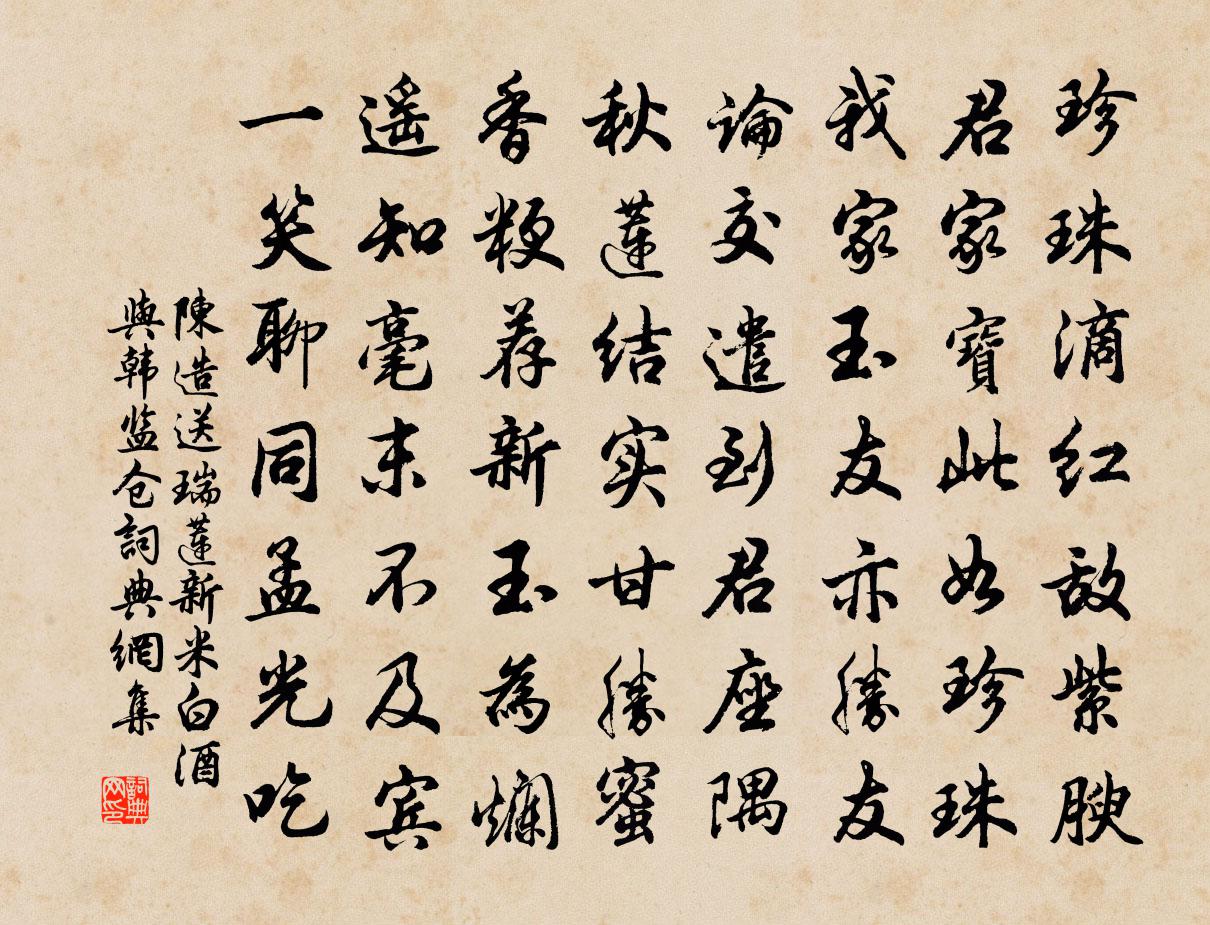 珍珠滴红敌紫腴
君家寳此如珍珠
我家玉友亦勝友
論交遣到君座隅
秋蓮结实甘勝蜜
香粳荐新玉為爛
遥知毫末不及宾
一笑聊同孟光吃
陳造送瑞蓮新米白酒
與韩监仓詞典網集
詞典网印